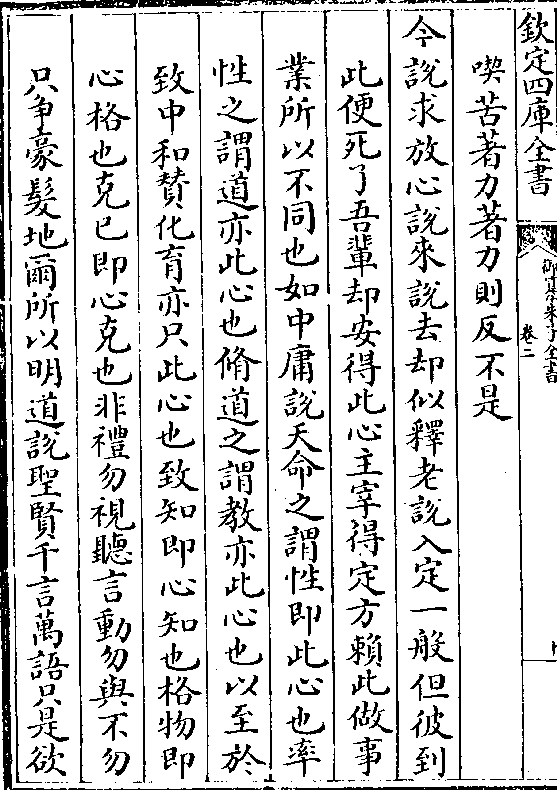 欽定四庫全書
御纂朱子全書
卷二
喫苦著力著力則反不是
今說求放心說來說去却似釋老說入定一般但彼到
此便死了吾輩却安得此心主宰得定方賴此做事
業所以不同也如中庸說天命之謂性即此心也率
性之謂道亦此心也脩道之謂教亦此心也以至於
致中和賛化育亦只此心也致知即心知也格物即
心格也克已即心克也非禮勿視聽言動勿與不勿
只争豪髮地爾所以明道說聖賢千言萬語只是欲